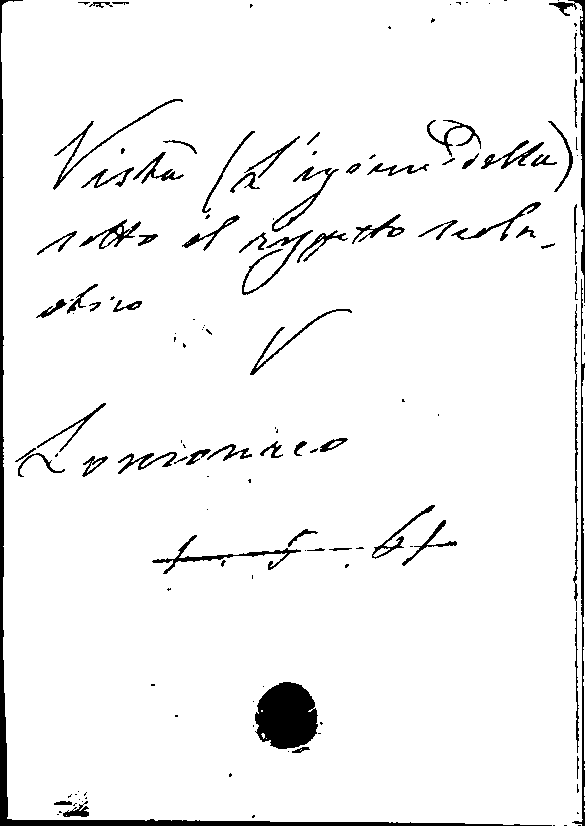 Vista (L'igiene della)
sotto il rispetto scola-
stico
V
Lomonaco
1. 5. 61